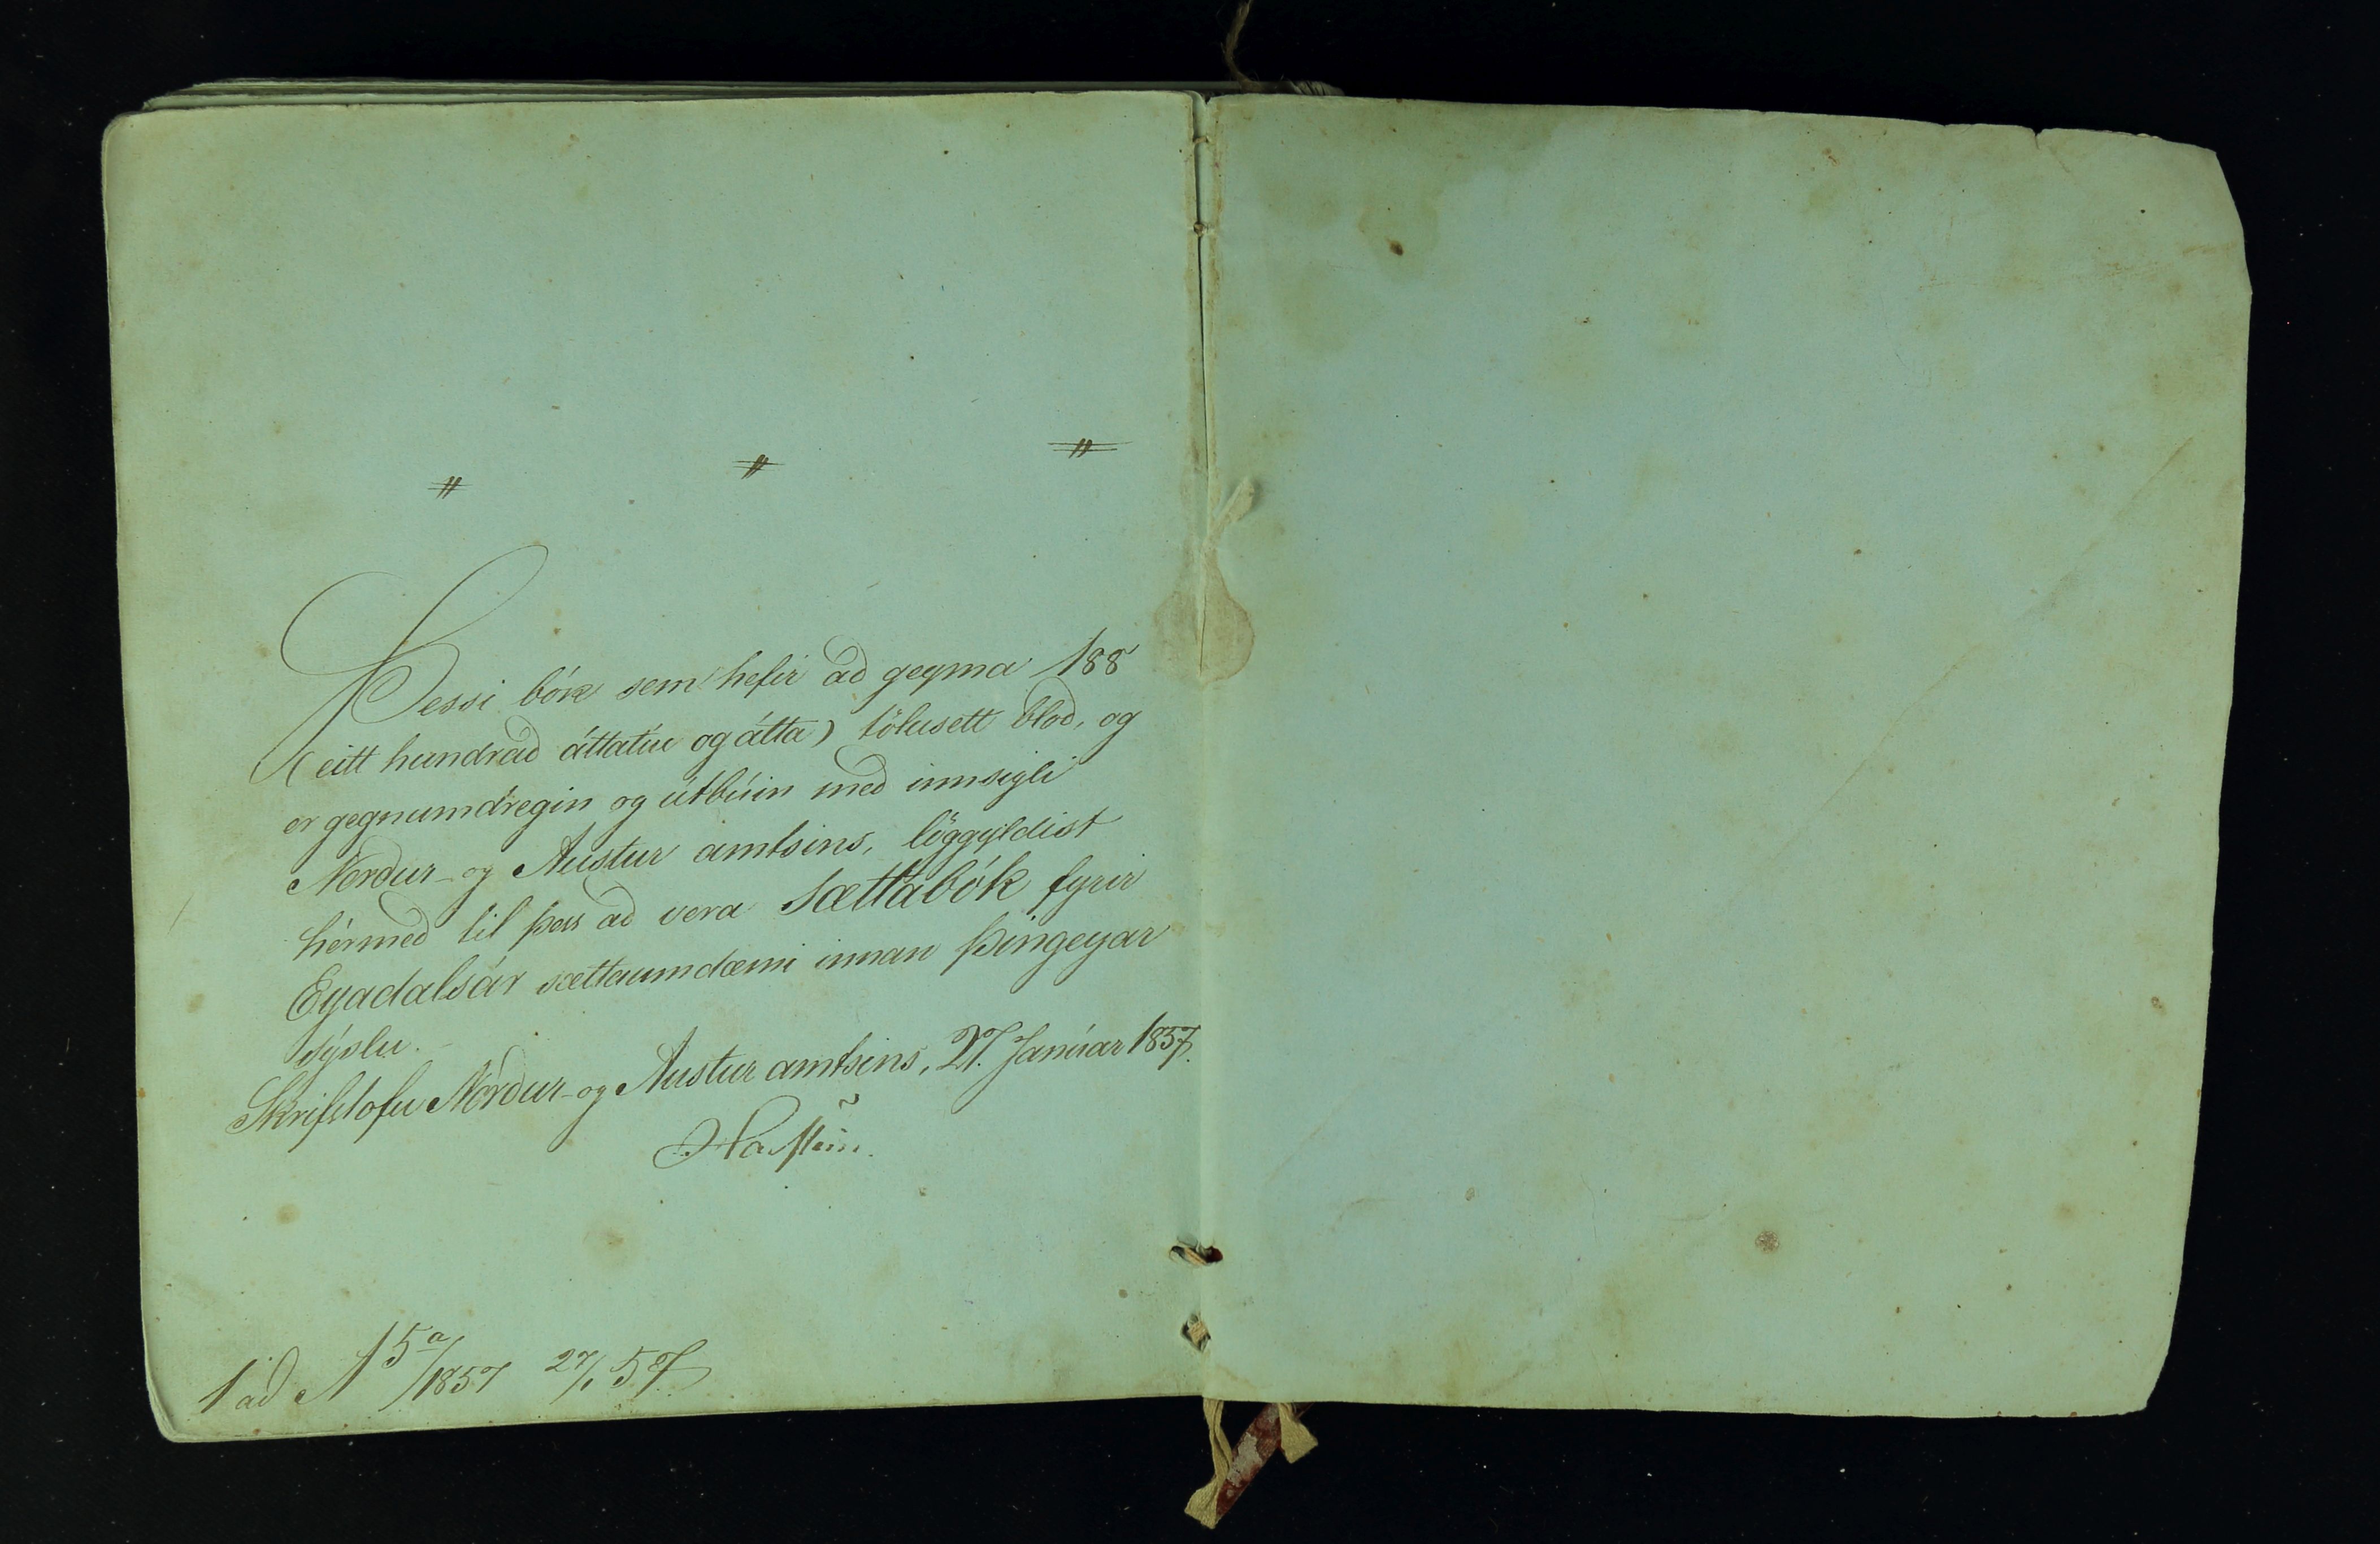 〃 〃 〃
Þessi bók sem hefir að geyma 188
(eitt hundrað áttatíu og átta) tölusett blöð, og
er gegnumdregin og útbúin með innsigli
Norður- og Austur amtsins, löggyldist
hérmeð til þess að vera Sættabók fyrir
Eyadalsár sættaumdæmi innan Þingeyar
sýslu.
Skrifstofu Norður- og Austur amtsins, 27. Janúar 1857.
Havstein.
1 að N 5a/1857 27/1 57